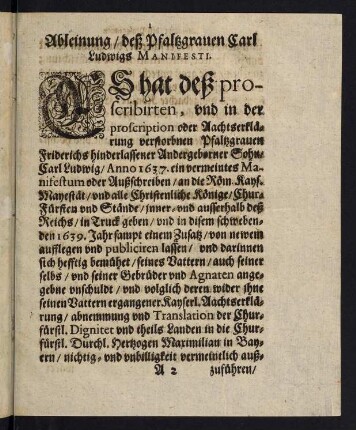 1
Ableinung / deß Pfaltzgrauen Carl
Ludwigs MANIFESTI.
ES hat deß pro-
scribirten, vnd in der
proscription oder Aachtserklä-
rung verstorbnen Pfaltzgrauen
Friderichs hinderlassener Andergeborner Sohn /
Carl Ludwig / Anno 1637. ein vermeintes Ma-
nifestum oder Außschreiben / an die Röm. Kays.
Mayestät / vnd alle Christenliche Könige / Chur-
Fürsten vnd Stände / inner- vnd ausserhalb deß
Reichs / in Truck geben / vnd in disem schweben-
den 1639. Jahr sampt einem Zusatz / von newem
aufflegen vnd publiciren lassen / vnd darinnen
sich hefftig bemühet / seines Vattern / auch seiner
selbs / vnd seiner Gebrüder vnd Agnaten ange-
gebne vnschuldt / vnd volglich deren wider ihne
seinen Vattern ergangener Kayserl. Aachtserklä-
rung / abnemmung vnd Translation der Chur-
fürstl. Dignitet vnd theils Landen in die Chur-
fürstl. Dürchl. Hertzogen Maximilian in Bay-
ern / nichtig- vnd vnbilligkeit vermeintlich auß-
A 2 zuführen /